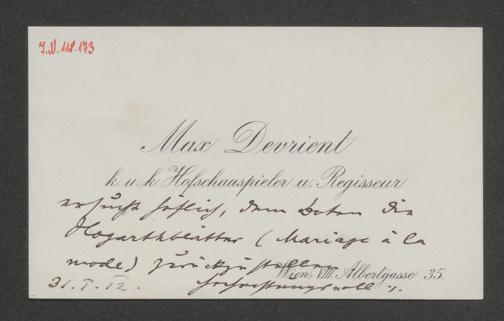 J.N. 118.173
Max Devrient
k. u. k. Hofschauspieler u. Regisseur
ersucht höflich, dem Boten die
Hogarthblätter (Mariage à la
mode) zurückzustellen
Wien, VIII. Albertgasse 35.
31. I. 12. hochachtungsvoll